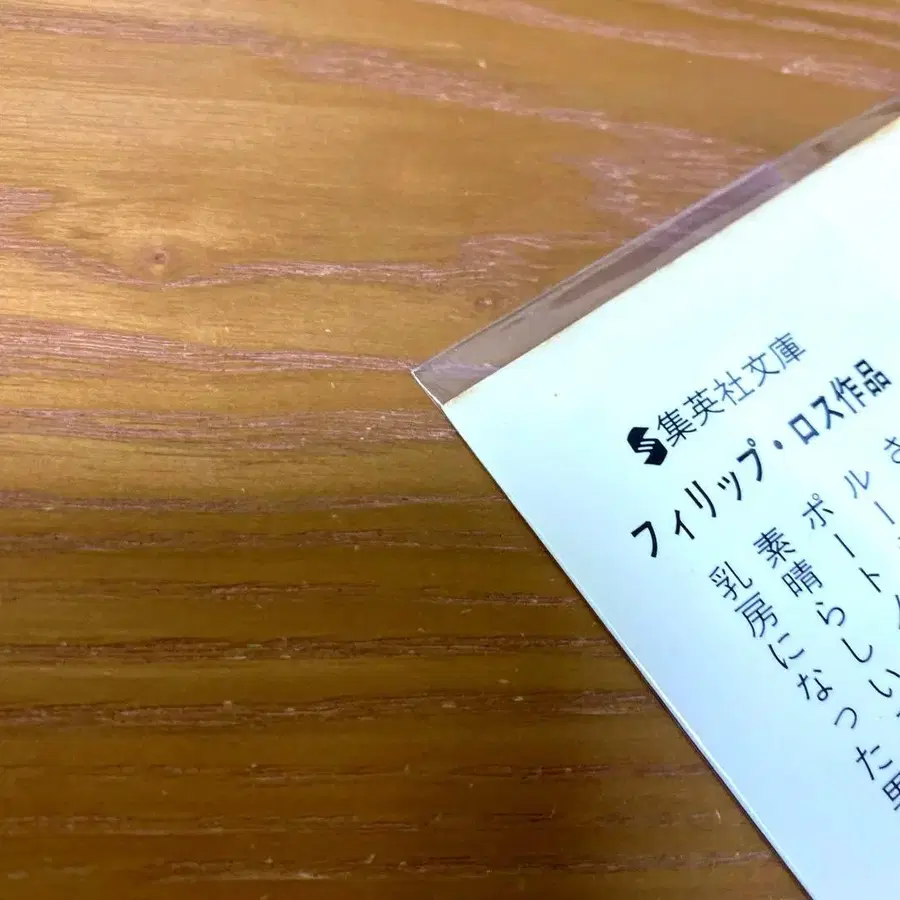 集英社文庫
フィリップ・ロス作品
さ
ルー
ポート
素晴らしい
乳房になった男